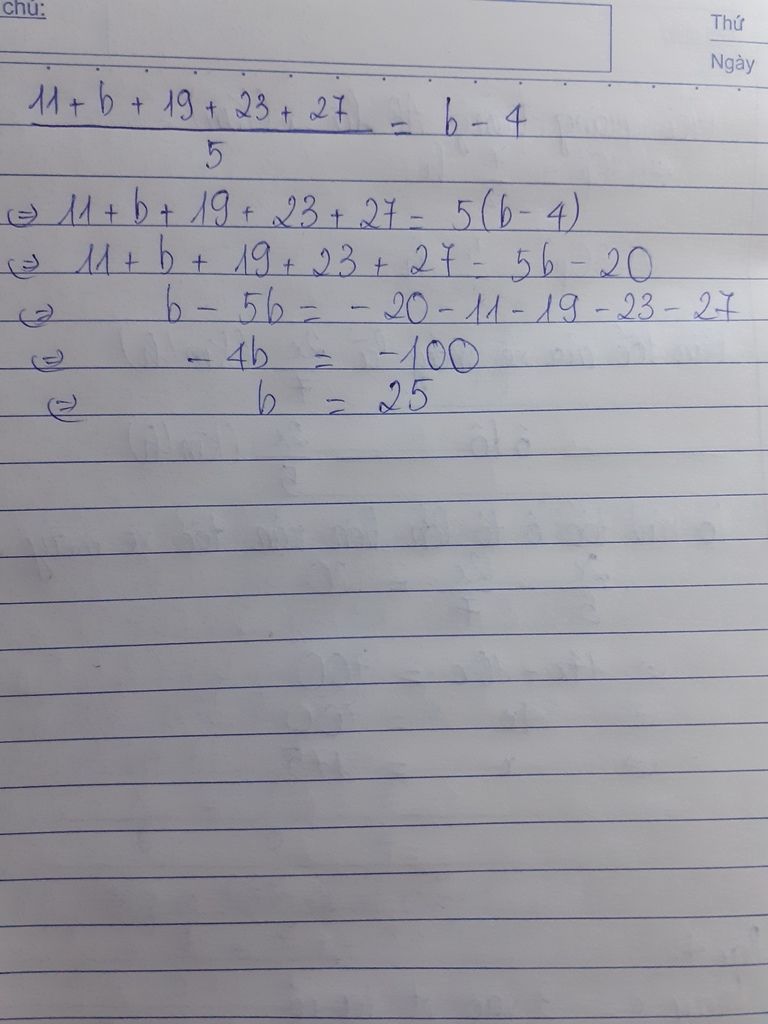 chú:
Thứ
Ngày
11 + b + 19 + 23 + 27 / 5 = b - 4
⇔ 11 + b + 19 + 23 + 27 = 5(b - 4)
⇔ 11 + b + 19 + 23 + 27 = 5b - 20
⇔ b - 5b = - 20 - 11 - 19 - 23 - 27
⇔ - 4b = -100
⇔ b = 25